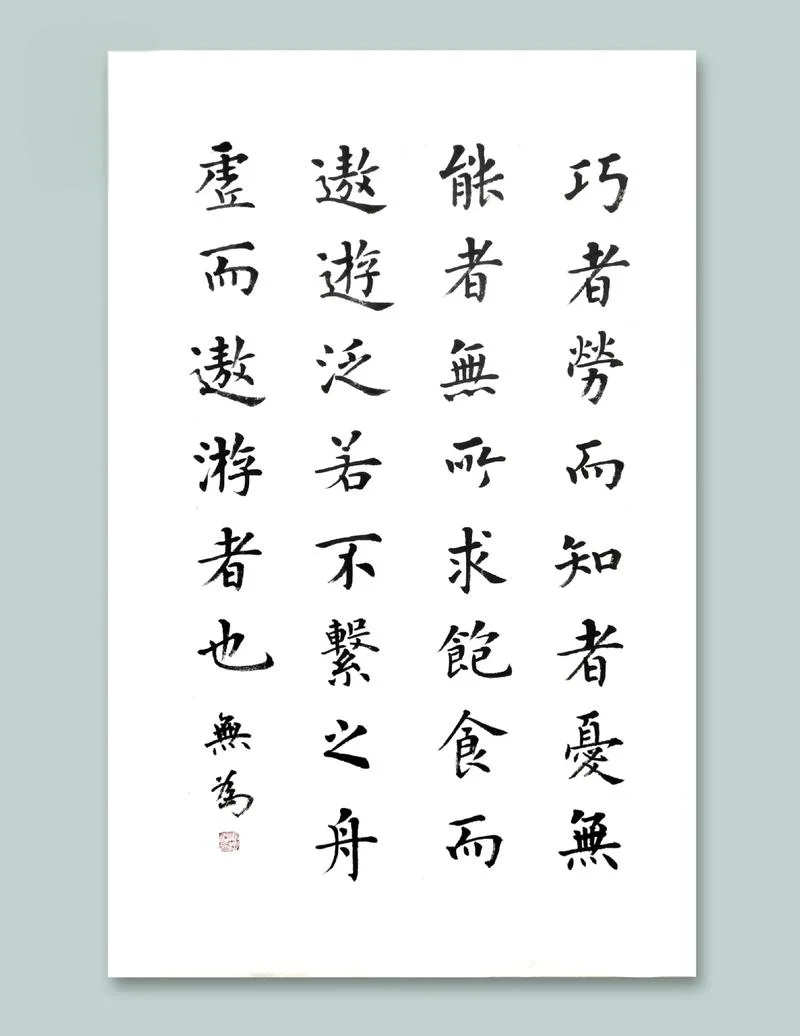 巧者勞而知者憂無
能者無所求飽食而
遨遊泛若不繫之舟
虛而遨游者也無為